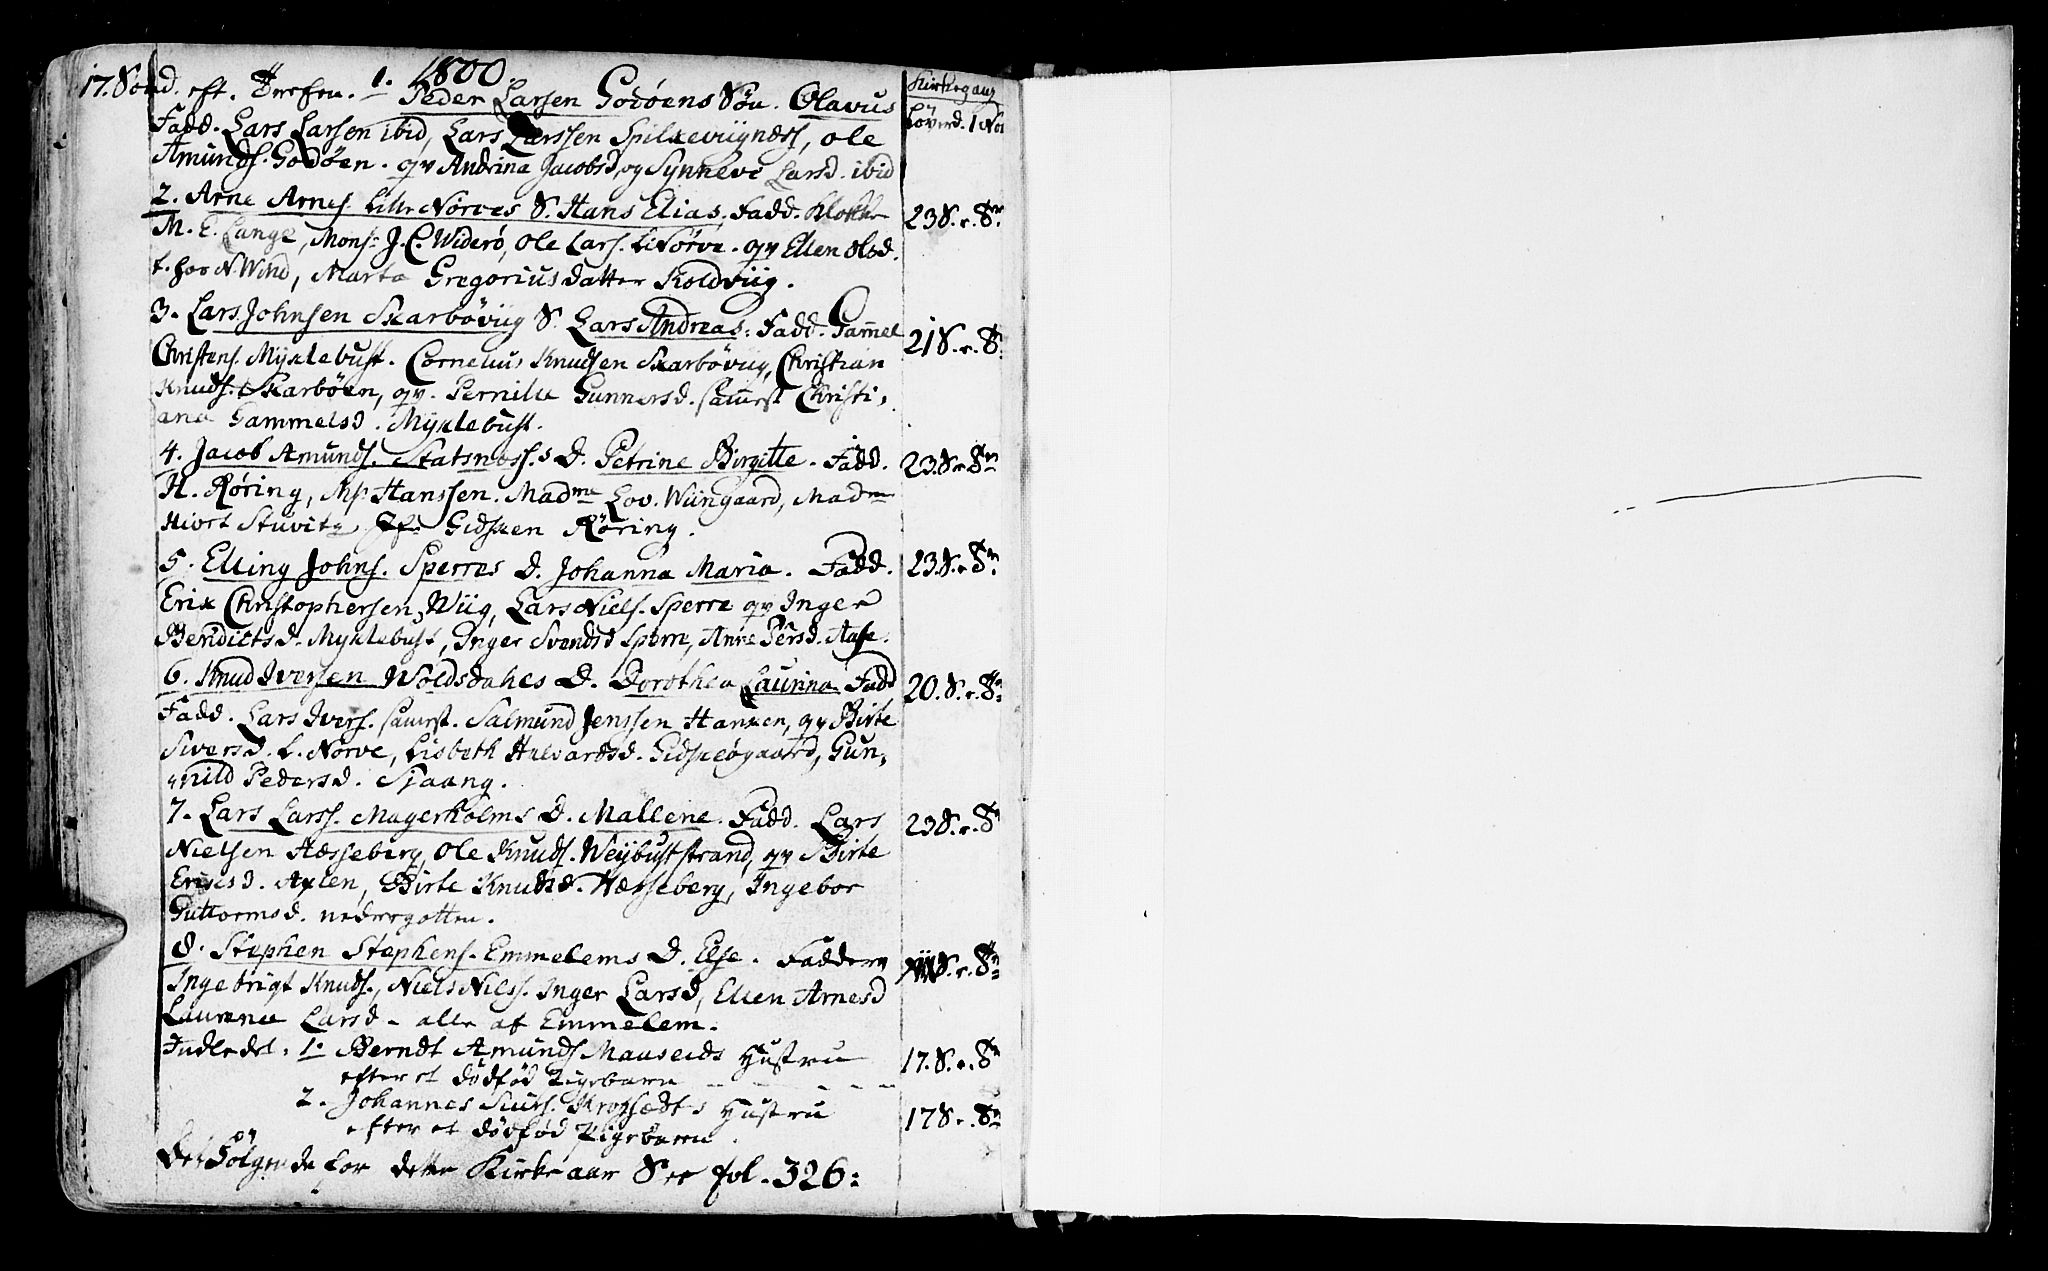 1800.
17. Sönd. eft. Trefm. 1. Peder Larsen Godöens Sön. Olavus
Fadd. Lars Larsen ibid, Lars Larssen Spilkeviignæss, Ole
Amunds. Godöen. qv Andrina Jacobsd, og Synneve Larsd. ibid
2. Arne Arnes. Lille Nörves S. Hans Elias. Fadd. Klokker
M. E. Lange, Mons: J. C. Widerö, Ole Lars. L. Nörve. qv Ellen Olsd.
t. hos N. Wind, Marta Gregorius datter Koldviig.
3. Lars Johnsen Skarböviig S. Lars Andreas. Fadd. Gam̄el
Christens. Myklebust. Cornelius Knudsen Skarböviig, Christian
Knuds. Skarböen, qv. Pernille Gunnersd. sam̄est Christi,
ana Gammelsd. Myklebust.
4. Jacob Amunds. Statsness.s D. Petrine Birgitte. Fadd.
H. Röring, Hanssen. Madme Lov. Wiingaard, Madm
Hiort Stuvitz Gidsken Röring.
5. Elling Johns. Sperres D. Johanna Maria. Fadd.
Erik Christophersen Wiig, Lars Niels. Sperre qv Inger
Bendicts d. Myklebust, Inger Svendsd Sperre, Anne Persd. Aase.
6. Knud Iversen Woldsdahls D. Dorothea Laurina. Fadd
Fadd. Lars Ivers. sam̄est. Salmund Jenssen Hanken, qv Birte
Sivers d. L. Nörve, Lisbeth Halvardsd. Gidskeögaard, Gun,
nild Pedersd. Sjaang.
7. Lars Larss. Magerholms D. Mallene. Fadd. Lars
Nielsen Hæsseberg, Ole Knuds. Weibuststrand, qv Birte
Ericsd. Axlen, Birte Knudsd. Hæsseberg, Ingebor
Guttormsd. nedregotten.
8. Stephen Stephens. Emmelems D. Else. Faddere
Ingebrigt Knuds., Niels Nilss. Inger Larsd, Ellen Arnesd
Laurence Larsd - alle af Emmelem.
Indledet. 1. Berndt Amunds Mauseids Hustrue
efter et dödföd Pigebarn
2. Johannes Siurs. Krogsædts Hustru
efter et dödföd Pigebarn.
Det Fölgende for dette Kirke aar See fol. 326:
Kirkegang
Löverd. 1 Nov
23 S. e. Tr.
21 S. e. Tr
23. S. e. Tr
23. S. e. Tr
20. S. e. Tr
23 S. e. Tr
S. e. Tr
17. S. e. Tr
17 S. e. Tr